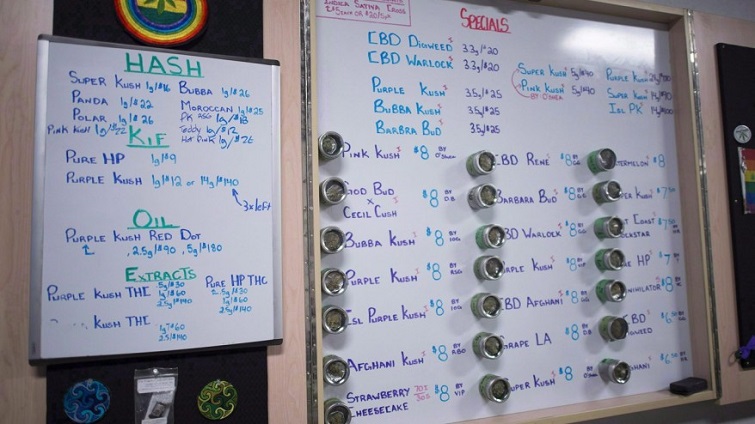 HASH
SUPER KUSH 1g/$16
BUBBA 1g/$26
PANDA 1g/$22
MOROCCAN 1g/$25
POLAR 1g/$26
PINK KUSH
TEDDY 1g/$12
HOT PINK 1g/$26
KIF
PURE HP 1g/$9
PURPLE KUSH 1g/$12 OR 14g/$140
3x left
OIL
PURPLE KUSH RED DOT
.25g/$90, .5g/$180
EXTRACTS
PURPLE KUSH THC .5g/$30
1g/$60
2.5g/$140
PURE HP THC
.5g/$30
1g/$60
2.5g/$140
KUSH THC
1g/$60
2.5/$140
INDICA SATIVA
SPECIALS
CBD DIGWEED 3.3g/$20
CBD WARLOCK 3.3g/$20
PURPLE KUSH 3.5g/$25
BUBBA KUSH 3.5g/$25
BARBRA BUD 3.5g/$25
SUPER KUSH 5g/$40
PINK KUSH 5g/$40
PURPLE KUSH
SUPER KUSH
ISL PK
PINK KUSH $8 BY
GOD BUD $8 BY
X
CECIL CUSH
BUBBA KUSH $8 BY
PURPLE KUSH $8 BY
ISL PURPLE KUSH $8 BY
AFGHANI KUSH $8 BY RBD
STRAWBERRY $8 BY VIP
CHEESECAKE
CBD RENE $8
BARBARA BUD $8
CBD WARLOCK $8
PURPLE KUSH $8
CBD AFGHANI $8
GRAPE LA $8
SUPER KUSH $8 BY
TERMELON $8
PER KUSH $7.50
ST COAST
CKSTAR
RE HP $7
NIHILATOR $8
CBD
IGWEED
GHANI